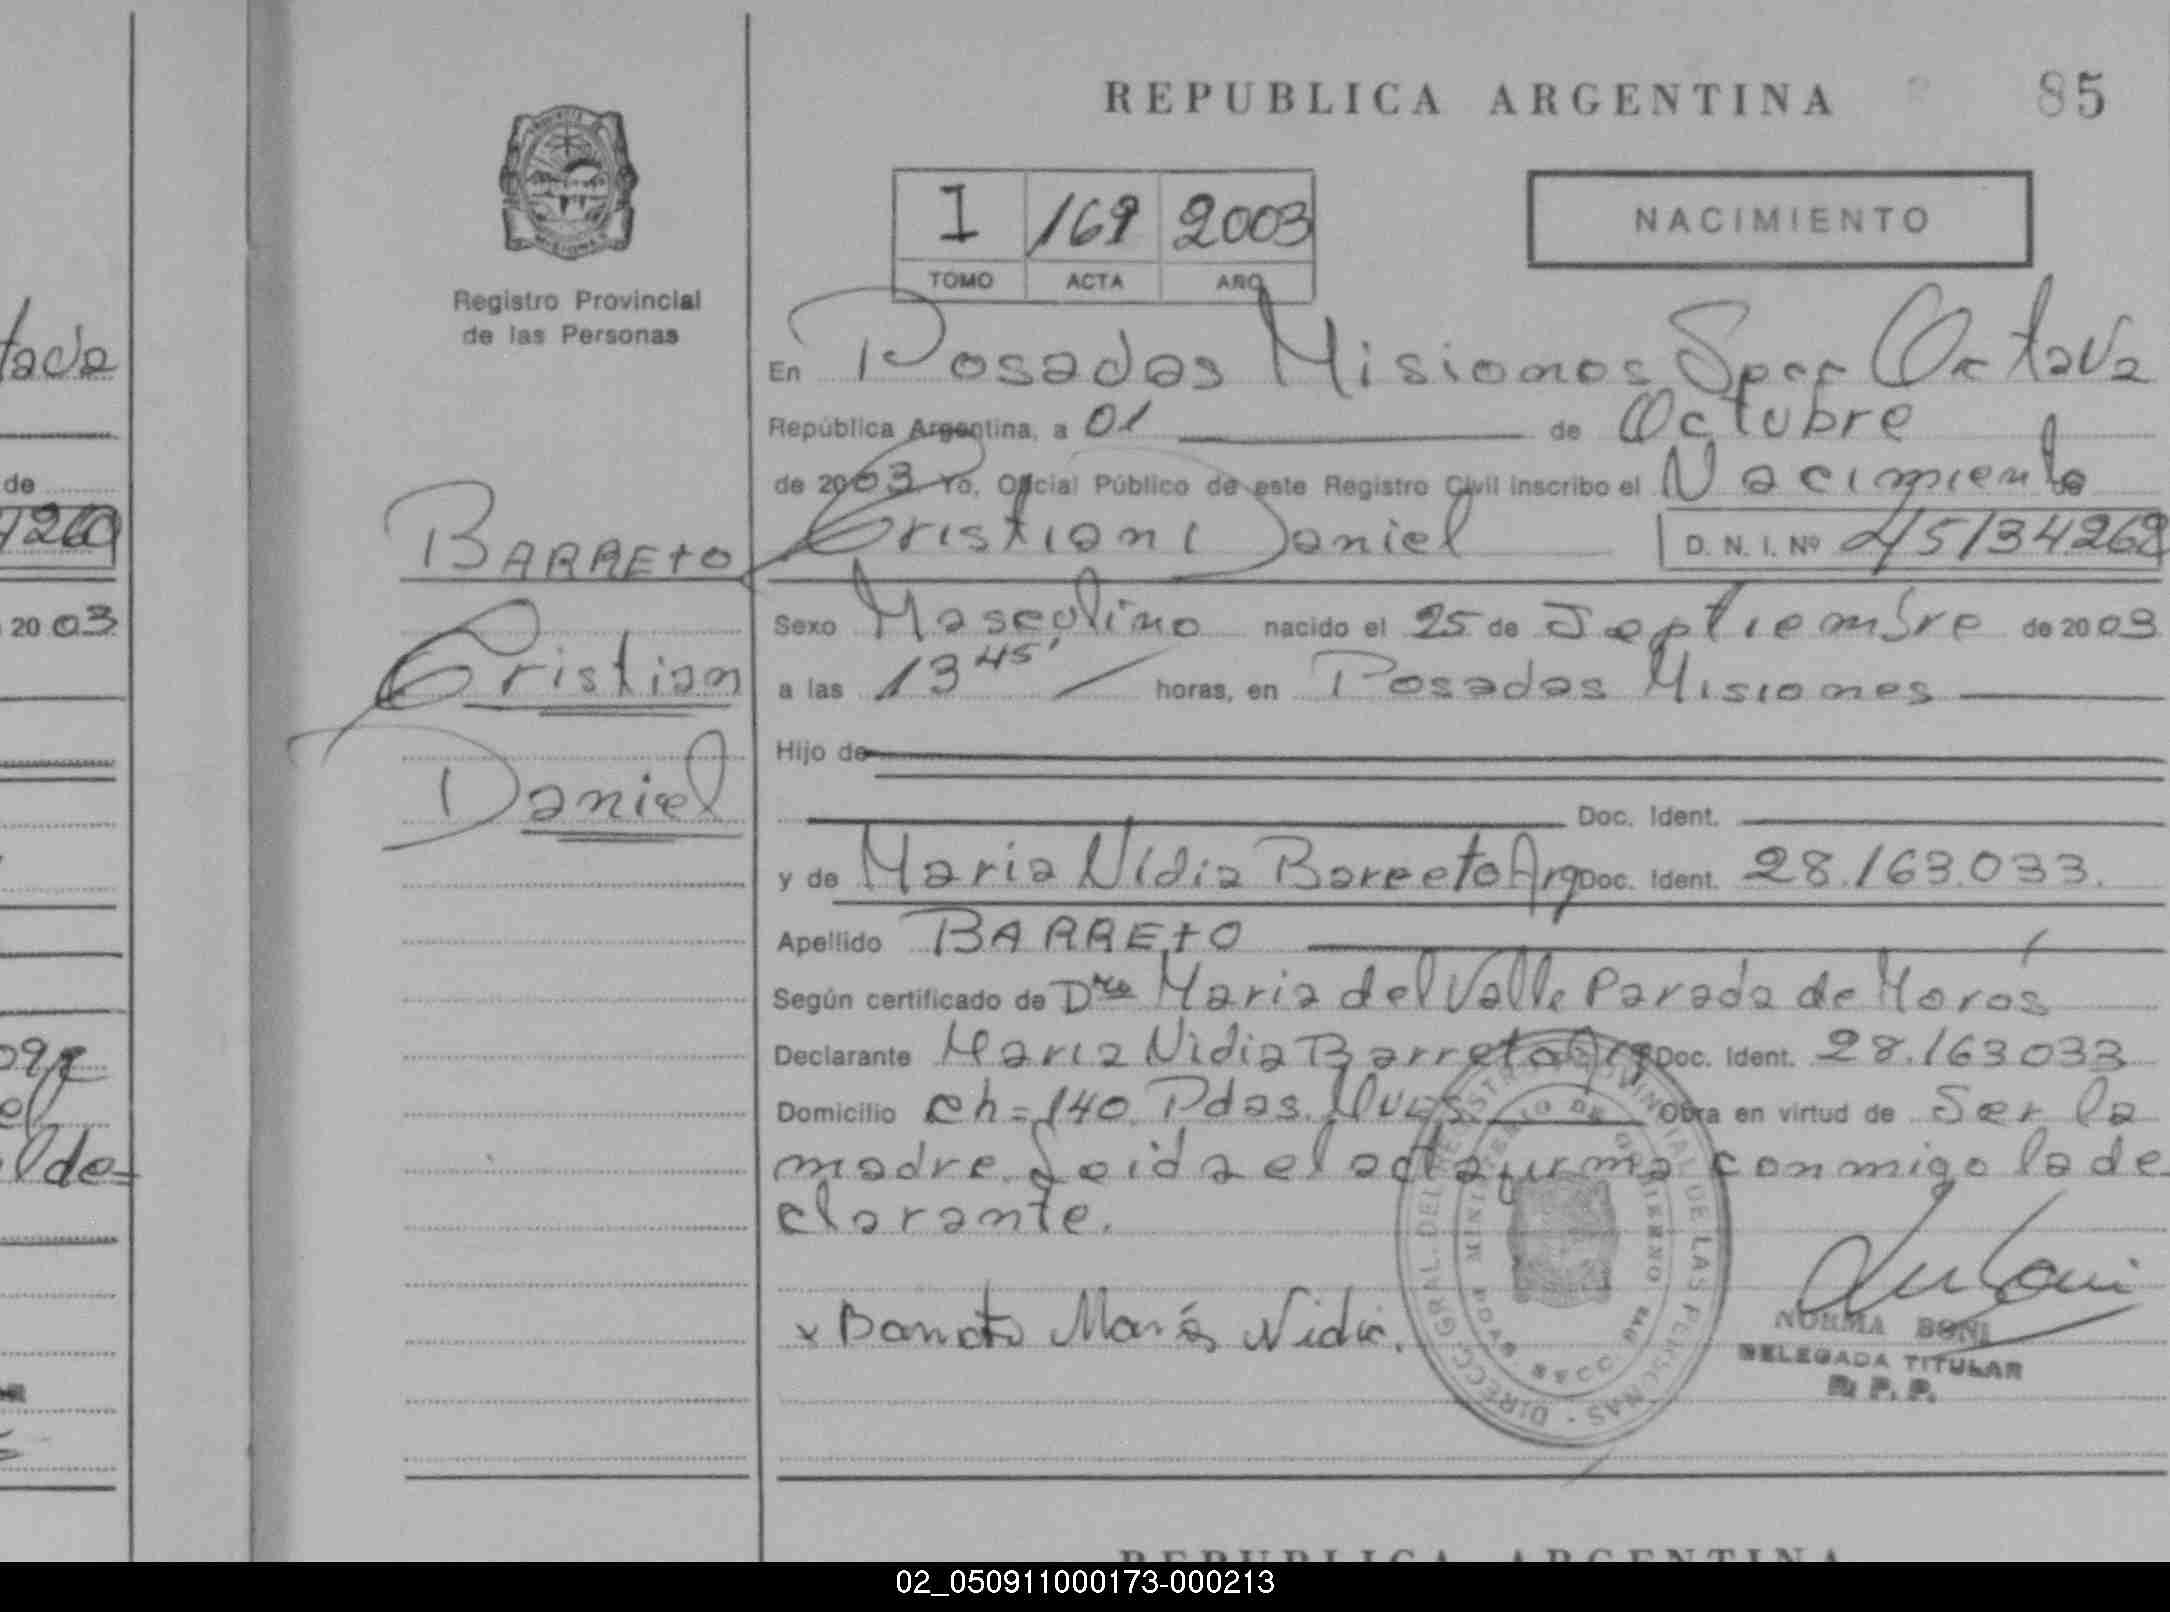 REPUBLICA ARGENTINA 85
I 169 2003
TOMO ACTA AÑO
NACIMIENTO
Registro Provincial
de las Personas
En Posadas Misiones Secc Octava
República Argentina, a 01 de Octubre
de 2003. Yo, Oficial Público de este Registro Civil inscribo el Nacimiento de
BARRETO Cristian Daniel D. N. I. Nº 45134268
Cristian
Daniel
Sexo Masculino nacido el 25 de Septiembre de 2003
a las 13 45' horas, en Posadas Misiones
Hijo de
Doc. Ident.
y de Maria Nidia Barreto Arg Doc. Ident. 28.163.033.
Apellido BARRETO
Según certificado de Dra Maria del Valle Parada de Morós
Declarante Maria Nidia Barreto Arg Doc. Ident. 28.163033
Domicilio ch=140. Pdas. Mnes. Obra en virtud de Ser la
madre. Leida el acta firma conmigo la de
clarante.
x Barreto María Nidia.
DIRECC. GRAL. DEL REGISTRO PROVINCIAL DE LAS PERSONAS
MINISTERIO DE GOBIERNO
NORMA BONI
DELEGADA TITULAR
R. P. P.
tada
de
20 03
REPUBLICA ARGENTINA
02_050911000173-000213